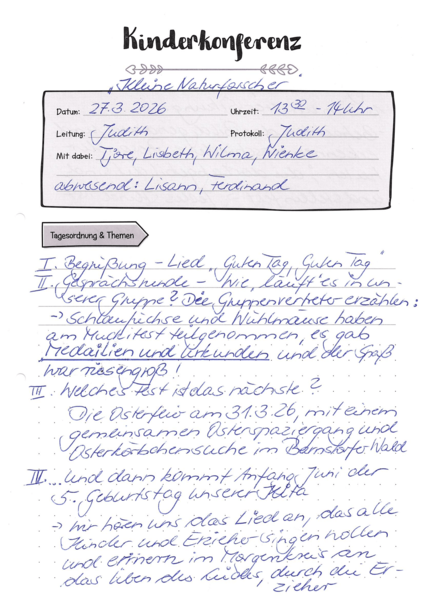 Kinderkonferenz
"Kleine Naturforscher"
Datum: 27.3.2026 Uhrzeit: 13³⁰ - 14 Uhr
Leitung: Judith Protokoll: Judith
Mit dabei: Tjore, Lisbeth, Wilma, Nienke
abwesend: Lisann, Ferdinand
Tagesordnung & Themen
I. Begrüßung - Lied "Guten Tag, Guten Tag"
II. Gesprächsrunde - Wie läuft es in un-
serer Gruppe? Die Gruppenvertreter erzählen:
-> Schlaufüchse und Wühlmäuse haben
am teilgenommen, es gab
Medaillen und Urkunden und der Spaß
war riesengroß!
III. Welches Fest ist das nächste?
Die Osterfeier am 31.3.26, mit einem
gemeinsamen Osterspaziergang und
Osterkörbchensuche im Wald
IV. ...und dann kommt Anfang Juni der
5. Geburtstag unserer Kita
-> wir hören uns das Lied an, das alle
Kinder und Erzieher singen wollen
und erinnern im Morgenkreis an
das Üben des Liedes, durch die Er-
zieher